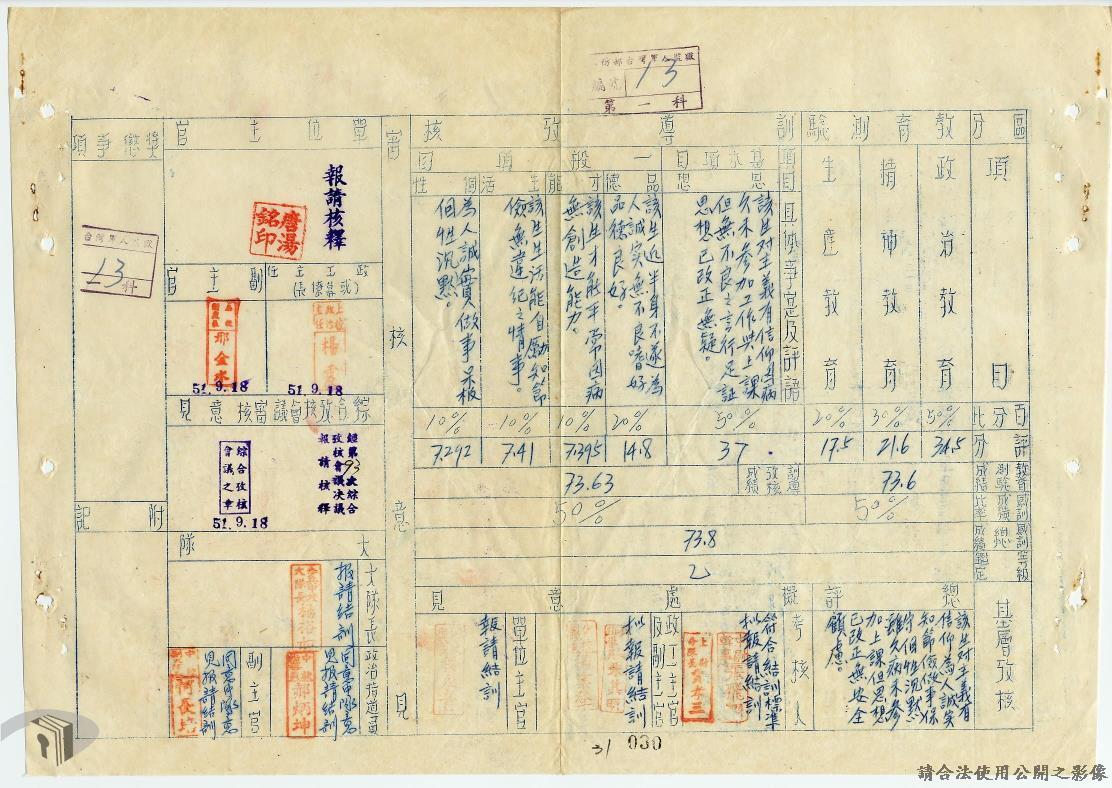 區分
項目
教育測驗
政治教育
精神教育
生產教育
訓導考核
項目
具體事寔及評語
基本項目
思想
該生對主義有信仰因病
久未參加工作與上課
但無不良之言行足証
思想已改正無疑。
一般項目
品德
該生近半身不遂為
人誠实無不良嗜好
品德良好。
才能
該生才能平常因病
無創造能力。
生活
該生生活能自勵知節
儉無違紀之情事。
個性
為人誠實做事呆板
個性沉默。
百分比
50%
30%
20%
50%
20%
10%
10%
10%
評分
34.5
21.6
17.5
37.
14.8
7.395
7.41
7.292
教育測驗成績
73.6
訓導考核成績
73.63
50%
50%
73.8
乙
基層考核
總評
該生對主義有
信仰為人誠实
知節儉做事保
守個性沉默
雖久病未參
加上課但思想
已改正無安全
顧慮。
擬處意見
考核人
符合結訓標準
擬報請結訓
政工主官及副主官
擬報請結訓
單位主官
報請結訓
審核意見
單位主官
報請核釋
唐湯銘印
政工主任
(或幕僚長)
51.9.18
副主官
邢金水
51.9.18
綜合考核會議審核意見
經第93次綜合
考核會議決議
報請核釋
綜合考核
會議之章
51.9.18
大隊
大隊長
報請結訓
政治指導員
同意中隊意
見報請結訓
郝炳坤
副主官
同意中隊意
見報請結訓
獎懲事項
附記
台灣軍人監獄
13
第一科
台灣軍人監獄
13
科
31
030
請合法使用公開之影像